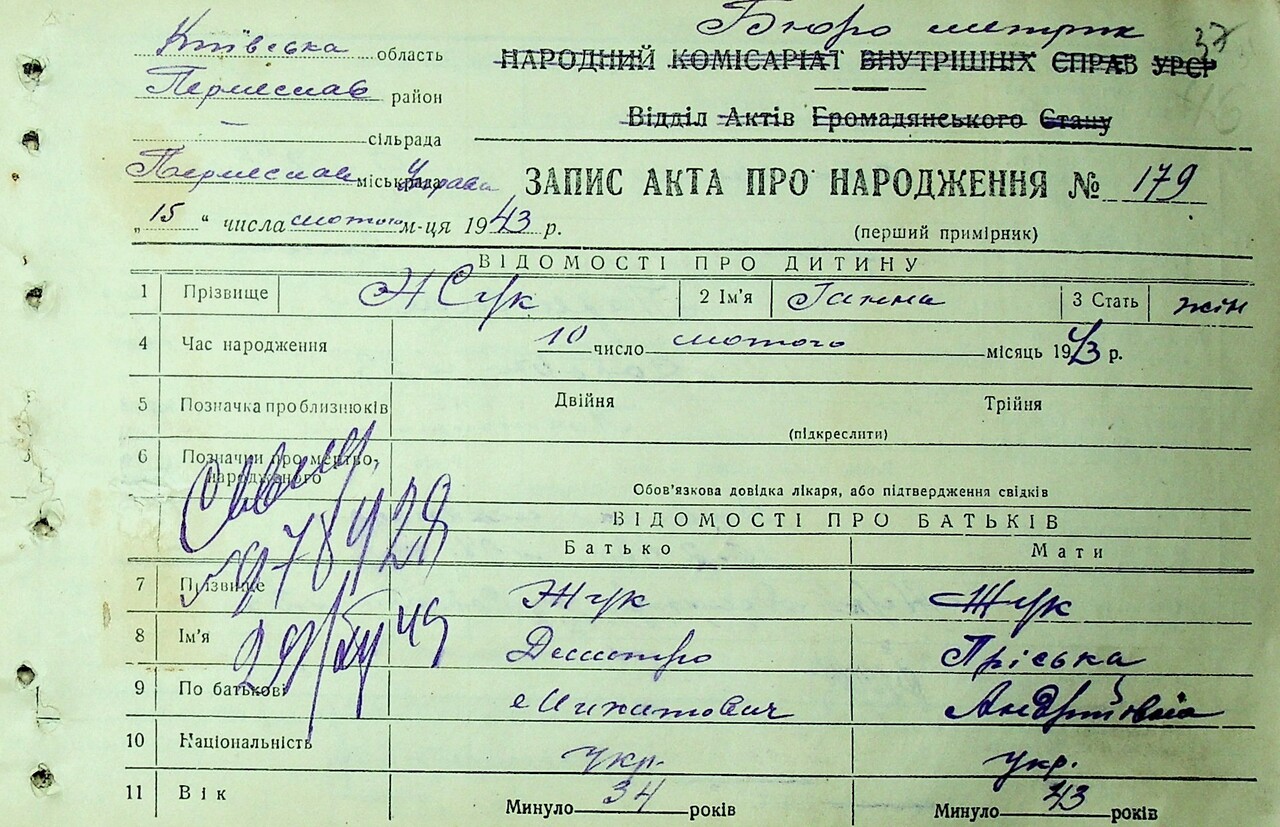 Київська область
Бюро метрик
37
НАРОДНИЙ КОМІСАРІАТ ВНУТРІШНІХ СПРАВ УРСР
район
Відділ Актів Громадянського Стану
— сільрада
міськрада Управа
ЗАПИС АКТА ПРО НАРОДЖЕННЯ № 179
„15“ числа лютого м-ця 1943 р.
(перший примірник)
ВІДОМОСТІ ПРО ДИТИНУ
1 Прізвище Жук 2 Ім'я Ганна 3 Стать жін
4 Час народження 10 число лютого місяць 1943 р.
5 Позначка про близнюків Двійня Трійня
(підкреслити)
6 Позначки про мертво-
народженого
Обов'язкова довідка лікаря, або підтвердження свідків
ВІДОМОСТІ ПРО БАТЬКІВ
Батько Мати
7 Прізвище Жук Жук
8 Ім'я Дмитро Пріська
9 По батькові Микитович Андріївна
10 Національність укр. укр.
11 Вік Минуло 34 років Минуло 43 років